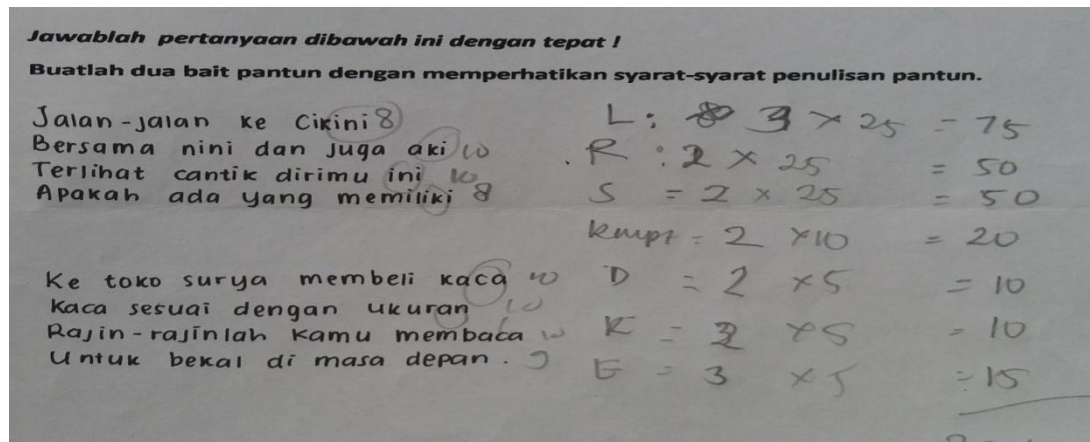 Jawablah pertanyaan dibawah ini dengan tepat !
Buatlah dua bait pantun dengan memperhatikan syarat-syarat penulisan pantun.
Jalan-jalan ke Cikini 8
Bersama nini dan juga aki 10
Terlihat cantik dirimu ini 10
Apakah ada yang memiliki 8
L : 3 x 25 = 75
R : 2 x 25 = 50
S = 2 x 25 = 50
kmpt = 2 x 10 = 20
Ke toko surya membeli kaca 10
Kaca sesuai dengan ukuran 10
Rajin-rajinlah kamu membaca 10
Untuk bekal di masa depan.
D = 2 x 5 = 10
K = 2 x 5 = 10
E = 3 x 5 = 15